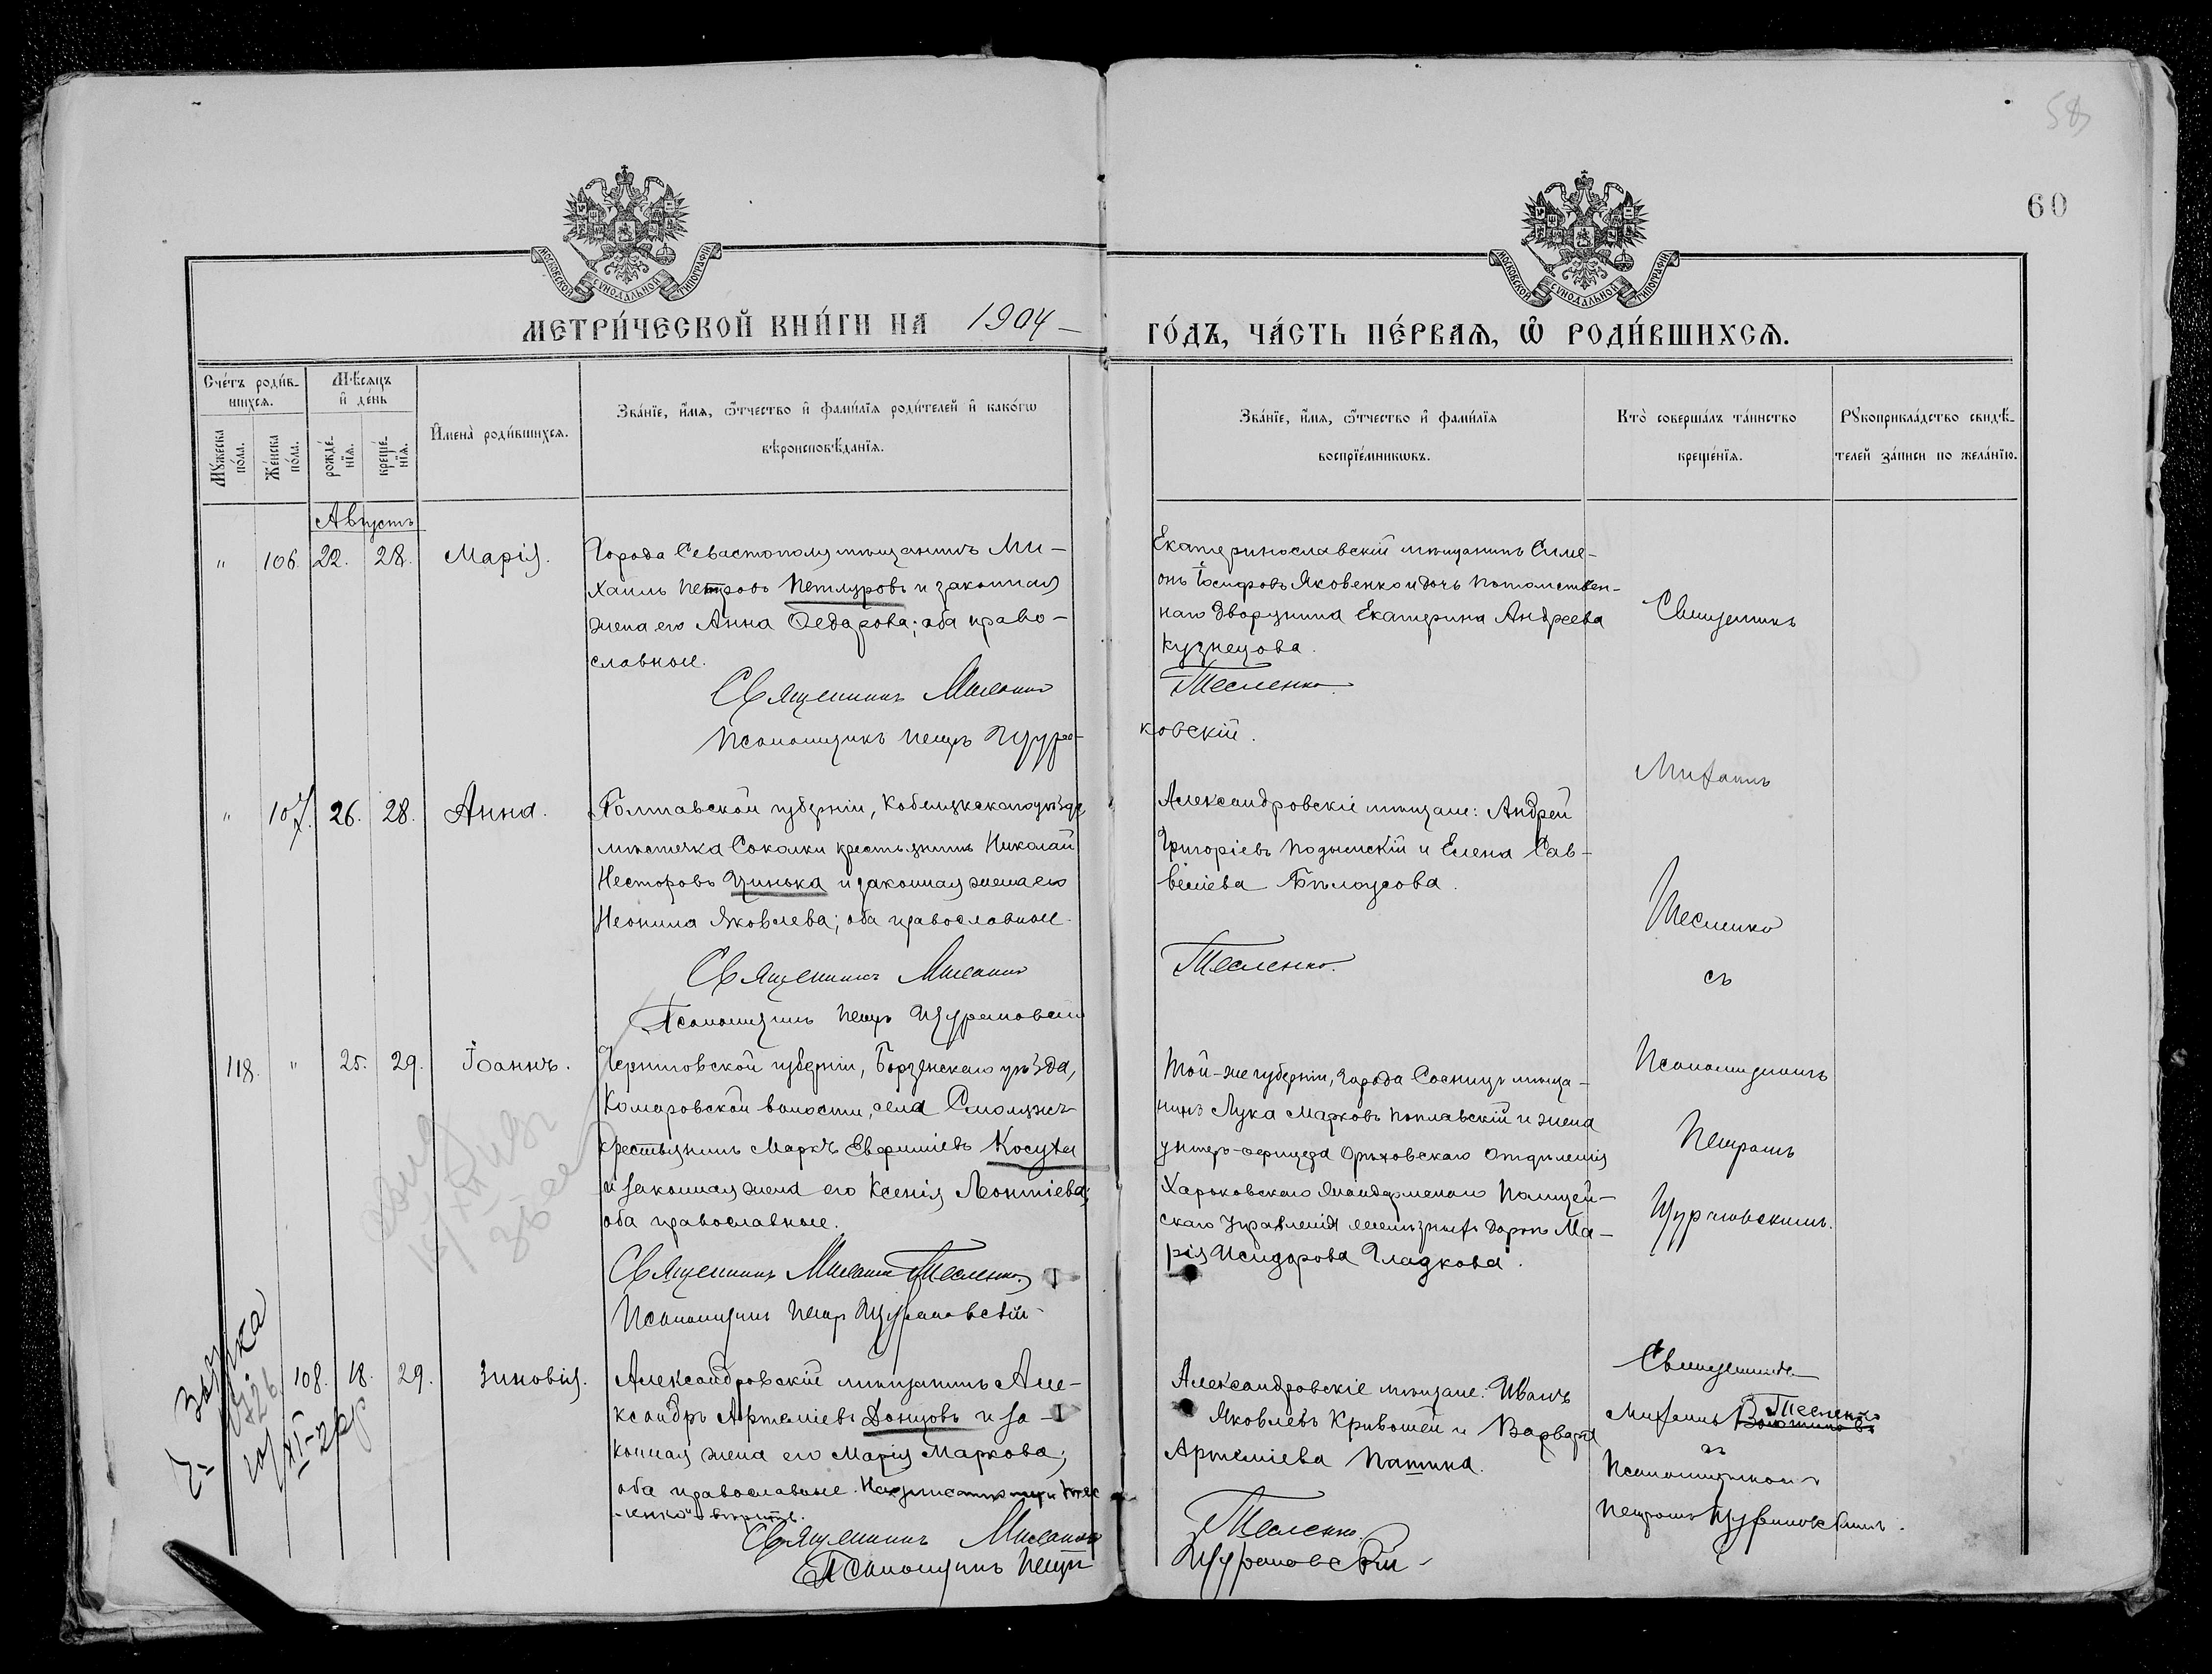 58
60
МОСКОВСКОЙ СѴНОДАЛЬНОЙ ТИПОГРАФІИ
МОСКОВСКОЙ СѴНОДАЛЬНОЙ ТИПОГРАФІИ
МЕТРИ́ЧЕСКОЙ КНИ́ГИ НА 1904
ГО́ДЪ, ЧА́СТЬ ПЕ́РВАѦ, Ѿ РОДИ́ВШИХСѦ.
Сче́тъ роди́в-
шихсѧ.
Мѣсѧцъ
и҆ де́нь
Мꙋ́жеска
по́ла.
Же́нска
по́ла.
рожде́-
нїѧ.
креще́-
нїѧ.
И҆мена̀ роди́вшихсѧ.
Зва́нїе, и҆́мѧ, ѻ҆́тчество и҆ фами́лїѧ роди́телей и҆ како́гѡ
вѣроисповѣ́данїѧ.
Зва́нїе, и҆́мѧ, ѻ҆́тчество и҆ фами́лїѧ
воспрїе́мникѡвъ.
Кто̀ соверша́лъ та́инство
креще́нїѧ.
Рꙋкоприкла́дство свидѣ́-
телей за́писи по жела́нїю.
Августъ
" 106. 22. 28. Марія.
Города Севастополя мѣщанинъ Ми-
хаилъ Петровъ Петлуровъ и законная
жена его Анна Ѳедорова; оба право-
славные.
Священникъ Михаилъ
Псаломщикъ Петръ Щура-
Екатеринославскій мѣщанинъ Симе-
онъ Іосифовъ Яковенко и дочь потомствен-
наго дворянина Екатерина Андреева
Кузнецова.
Тесленко.
ковскій.
Священникъ
Михаилъ
Тесленко
съ
Псаломщикомъ
Петромъ
" 107. 26. 28. Анна.
Полтавской губерніи, Кобелякскаго уѣзда
мѣстечка Соколки крестьянинъ Николай
Несторовъ и законная жена его
Неонила Яковлева; оба православные.
Священникъ Михаилъ
Псаломщикъ Петръ
Александровскіе мѣщане: Андрей
Григоріевъ и Елена Сав-
Бѣлоусова.
Тесленко.
118. " 25. 29. Іоаннъ.
Черниговской губерніи, Борзенскаго уѣзда,
Комаровской волости, села Смоляжъ
крестьянинъ Маркъ Евфиміевъ Косуха
и законная жена его Ксенія Леонтіева;
оба православные.
Священникъ Михаилъ Тесленко
Псаломщикъ Петръ
Той-же губерніи, города Сосницы мѣща-
нинъ Лука Марковъ Поплавскій и жена
унтеръ-офицера Орѣховскаго отдѣленія
Харьковскаго жандармскаго полицей-
скаго управленія желѣзныхъ дорогъ Ма-
рія Исидорова Гладкова.
108. 18. 29. Зиновія.
Александровскій мѣщанинъ Але-
ксандръ Артеміевъ Донцовъ и за-
конная жена его Марія Маркова;
оба православные.
Священникъ Михаилъ
Псаломщикъ Петръ
Александровскіе мѣщане: Иванъ
Яковлевъ Кривошей и Варвара
Артеміева
Тесленко.
Священникъ
Михаилъ Тесленко
съ
Псаломщикомъ
Петромъ